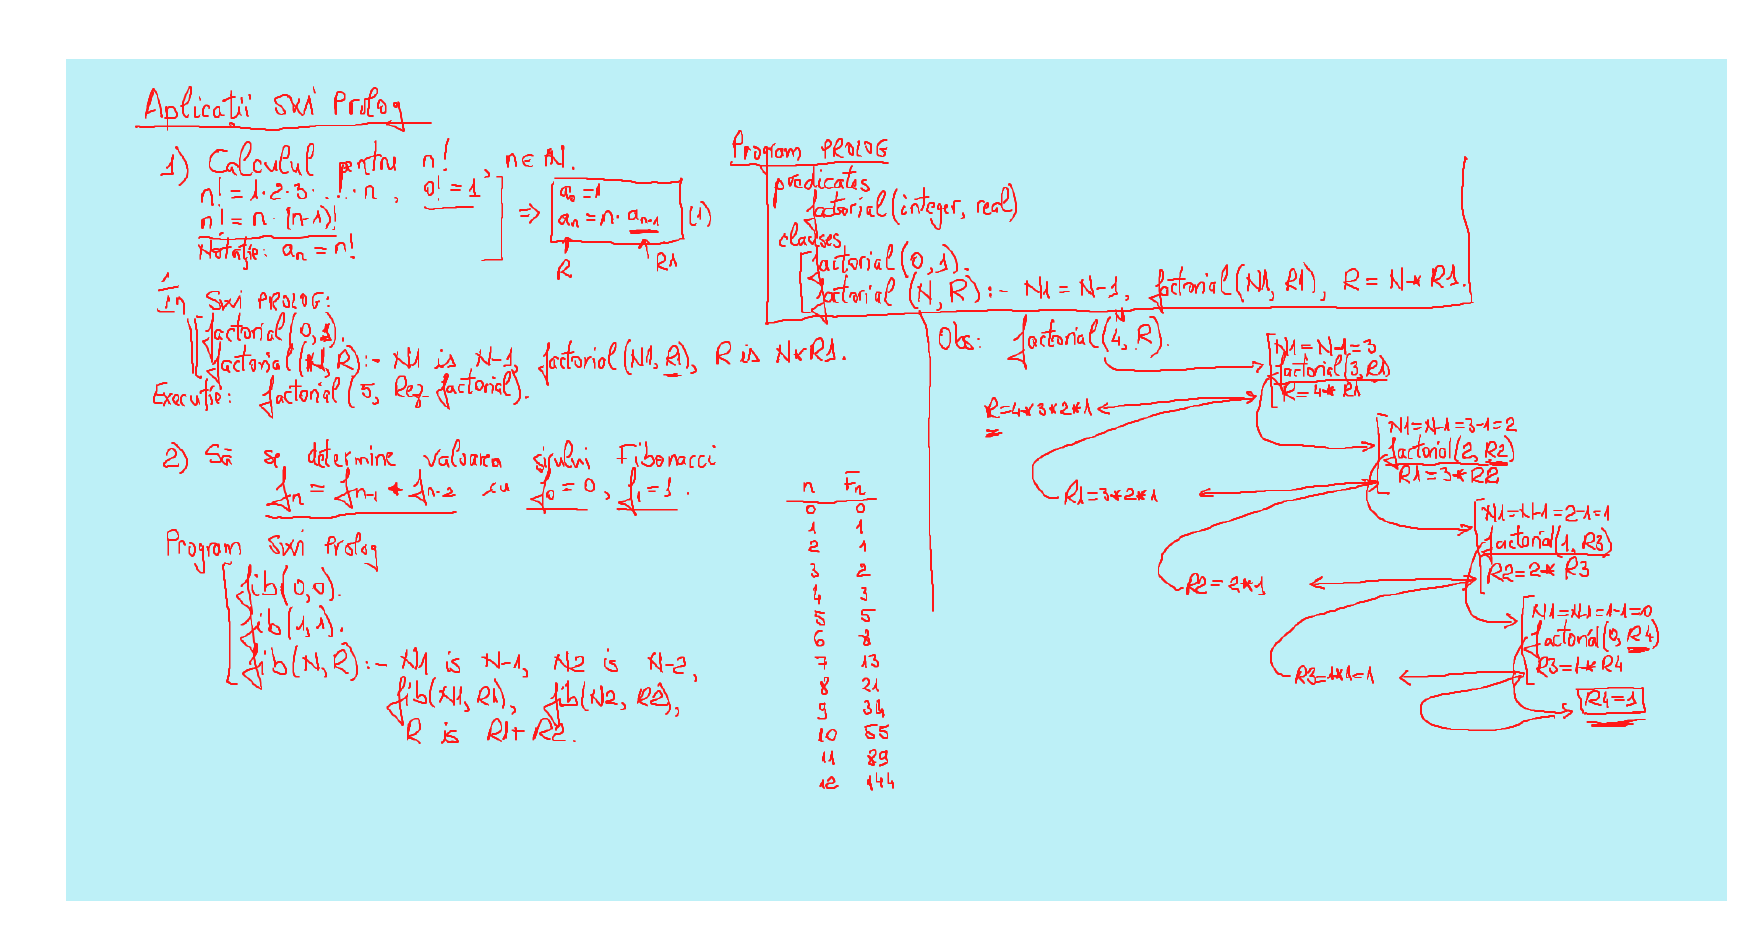 Aplicații SWI Prolog
1) Calculul pentru n!, n ∈ N.
n! = 1·2·3·...·n, 0! = 1
n! = n·(n-1)!
Notație: aₙ = n!
=> a₀ = 1
aₙ = n· aₙ₋₁ (1)
R R1
În SWI PROLOG:
factorial(0,1).
factorial(N,R):- N1 is N-1, factorial(N1,R1), R is N*R1.
Execuție: factorial(5, Rez_factorial).
2) Să se determine valoarea șirului Fibonacci
fₙ = fₙ₋₁ + fₙ₋₂ cu f₀ = 0, f₁ = 1.
Program SWI Prolog
fib(0,0).
fib(1,1).
fib(N,R):- N1 is N-1, N2 is N-2,
fib(N1,R1), fib(N2,R2),
R is R1+R2.
n Fₙ
0 0
1 1
2 1
3 2
4 3
5 5
6 8
7 13
8 21
9 34
10 55
11 89
12 144
Program PROLOG
predicates
factorial(integer, real)
clauses
factorial(0,1).
factorial(N,R):- N1 = N-1, factorial(N1, R1), R = N*R1.
Obs: factorial(4, R).
N
N1=N-1=3
factorial(3,R1)
R=4*R1
R=4*3*2*1
N1=N-1=3-1=2
factorial(2,R2)
R1=3*R2
R1=3*2*1
N1=N-1=2-1=1
factorial(1,R3)
R2=2*R3
R2=2*1
N1=N-1=1-1=0
factorial(0,R4)
R3=1*R4
R3=1*1=1
R4=1